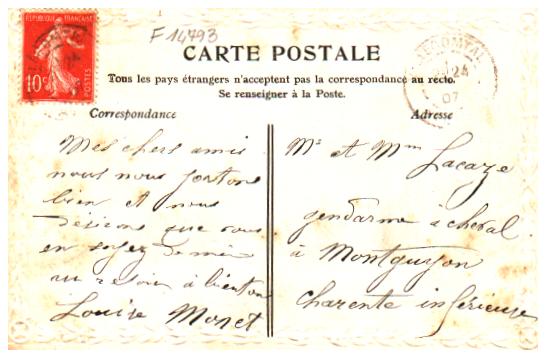 F 14793
RÉPUBLIQUE FRANÇAISE
10c
POSTES
CARTE POSTALE
Tous les pays étrangers n'acceptent pas la correspondance au recto.
Se renseigner à la Poste.
Correspondance
Mes chers amis
nous nous portons
bien et nous
désirons que vous
en soyez de même
au revoir à bientôt
Louise Monet
Adresse
24
07
Mr et Mme Lacaze
gendarme à cheval
à Montguyon
charente inférieure